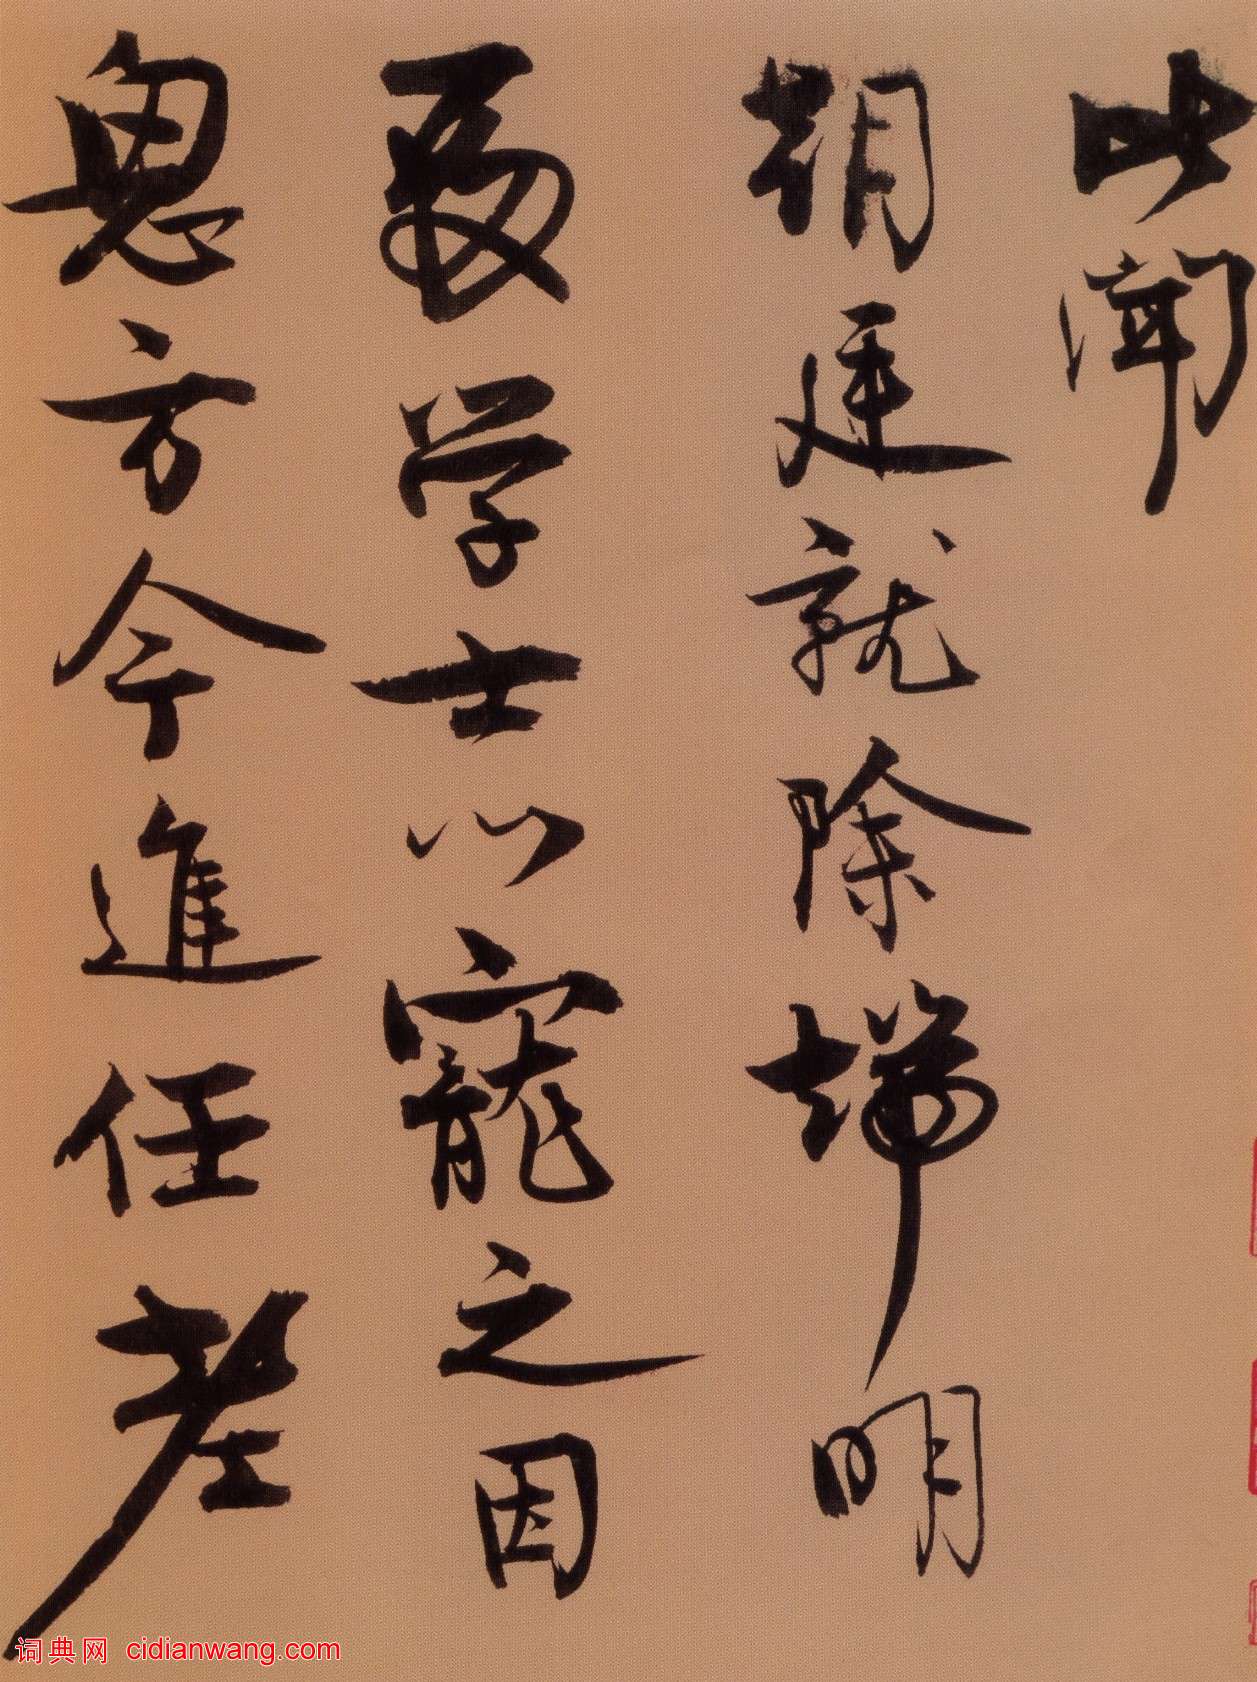 比聞
朝廷就除端明
殿学士以寵之因
思方今進任差
词典网 cidianwang.com